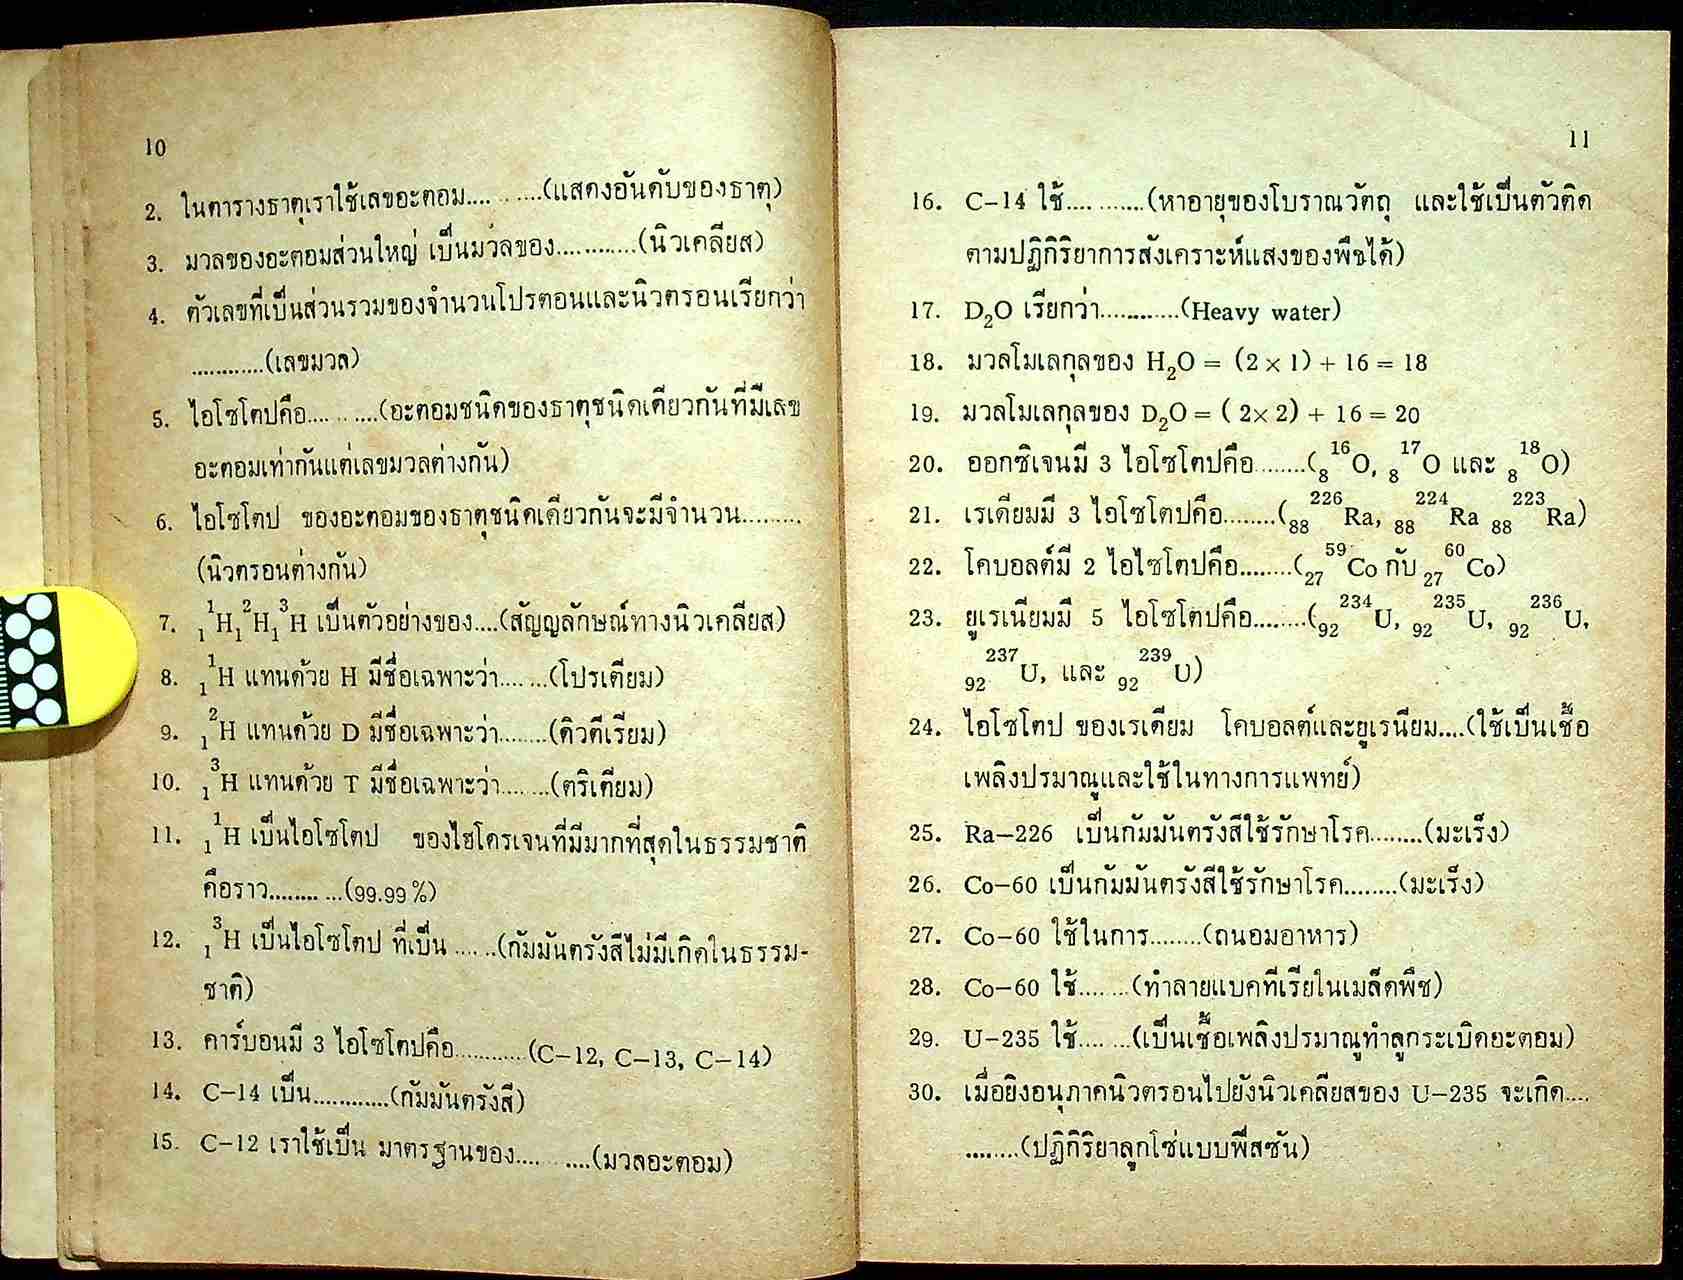 10
2. ในตารางธาตุเราใช้เลขอะตอม............(แสดงอันดับของธาตุ)
3. มวลของอะตอมส่วนใหญ่ เป็นมวลของ............(นิวเคลียส)
4. ตัวเลขที่เป็นส่วนรวมของจำนวนโปรตอนและนิวตรอนเรียกว่า
............(เลขมวล)
5. ไอโซโตปคือ............(อะตอมชนิดของธาตุชนิดเดียวกันที่มีเลข
อะตอมเท่ากันแต่เลขมวลต่างกัน)
6. ไอโซโตป ของอะตอมของธาตุชนิดเดียวกันจะมีจำนวน.........
(นิวตรอนต่างกัน)
7. ₁¹H₁²H₁³H เป็นตัวอย่างของ....(สัญญลักษณ์ทางนิวเคลียส)
8. ₁¹H แทนด้วย H มีชื่อเฉพาะว่า........(โปรเตียม)
9. ₁²H แทนด้วย D มีชื่อเฉพาะว่า........(ดิวตีเรียม)
10. ₁³H แทนด้วย T มีชื่อเฉพาะว่า........(ตริเตียม)
11. ₁¹H เป็นไอโซโตป ของไฮโดรเจนที่มีมากที่สุดในธรรมชาติ
คือราว............(99.99%)
12. ₁³H เป็นไอโซโตป ที่เป็น ........(กัมมันตรังสีไม่มีเกิดในธรรม-
ชาติ)
13. คาร์บอนมี 3 ไอโซโตปคือ............(C-12, C-13, C-14)
14. C-14 เป็น............(กัมมันตรังสี)
15. C-12 เราใช้เป็น มาตรฐานของ............(มวลอะตอม)
11
16. C-14 ใช้............(หาอายุของโบราณวัตถุ และใช้เป็นตัวติด
ตามปฏิกิริยาการสังเคราะห์แสงของพืชได้)
17. D₂O เรียกว่า............(Heavy water)
18. มวลโมเลกุลของ H₂O = (2 × 1) + 16 = 18
19. มวลโมเลกุลของ D₂O = ( 2× 2) + 16 = 20
20. ออกซิเจนมี 3 ไอโซโตปคือ........(₈¹⁶O, ₈¹⁷O และ ₈¹⁸O)
21. เรเดียมมี 3 ไอโซโตปคือ........(₈₈²²⁶Ra, ₈₈²²⁴Ra ₈₈²²³Ra)
22. โคบอลต์มี 2 ไอไซโตปคือ........(₂₇⁵⁹Co กับ ₂₇⁶⁰Co)
23. ยูเรเนียมมี 5 ไอโซโตปคือ........(₉₂²³⁴U, ₉₂²³⁵U, ₉₂²³⁶U,
₉₂²³⁷U, และ ₉₂²³⁹U)
24. ไอโซโตป ของเรเดียม โคบอลต์และยูเรนียม....(ใช้เป็นเชื้อ
เพลิงปรมาณูและใช้ในทางการแพทย์)
25. Ra-226 เป็นกัมมันตรังสีใช้รักษาโรค........(มะเร็ง)
26. Co-60 เป็นกัมมันตรังสีใช้รักษาโรค........(มะเร็ง)
27. Co-60 ใช้ในการ........(ถนอมอาหาร)
28. Co-60 ใช้........(ทำลายแบคทีเรียในเมล็ดพืช)
29. U-235 ใช้........(เป็นเชื้อเพลิงปรมาณูทำลูกระเบิดอะตอม)
30. เมื่อยิงอนุภาคนิวตรอนไปยังนิวเคลียสของ U-235 จะเกิด....
........(ปฏิกิริยาลูกโซ่แบบฟีสซัน)